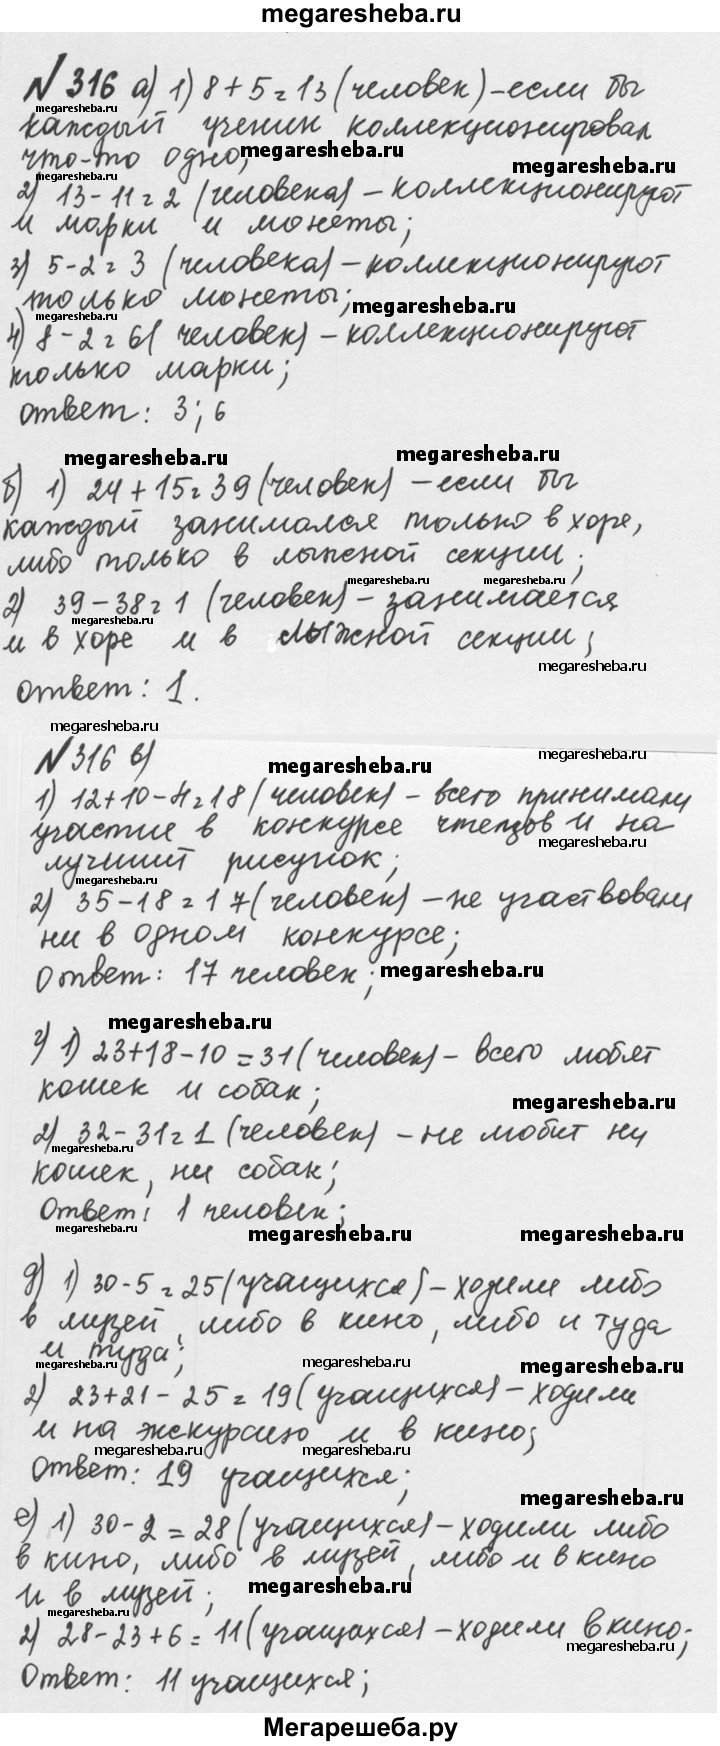 megaresheba.ru
№316 а) 1) 8+5=13 (человек) – если бы
megaresheba.ru
каждый ученик коллекционировал
что-то одно; megaresheba.ru
megaresheba.ru megaresheba.ru
2) 13-11=2 (человека) – коллекционируют
и марки и монеты;
3) 5-2=3 (человека) – коллекционируют
только монеты; megaresheba.ru
megaresheba.ru
4) 8-2=6( человек) – коллекционируют
только марки;
ответ: 3; 6
megaresheba.ru megaresheba.ru
б) 1) 24+15=39 (человек) – если бы
каждый занимался только в хоре,
либо только в лыжной секции;
megaresheba.ru megaresheba.ru
2) 39-38=1 (человек) – занимается
и в хоре и в лыжной секции;
megaresheba.ru
ответ: 1.
megaresheba.ru
№316 в) megaresheba.ru
1) 12+10-4=18 (человек) – всего принимали
участие в конкурсе чтецов и на
megaresheba.ru
лучший рисунок;
megaresheba.ru
2) 35-18=17 (человек) – не участвовали
ни в одном конкурсе;
Ответ: 17 человек; megaresheba.ru
megaresheba.ru
г) 1) 23+18-10=31 (человек) – всего любят
кошек и собак;
megaresheba.ru
2) 32-31=1 (человек) – не любит ни
megaresheba.ru
кошек, ни собак;
Ответ: 1 человек;
megaresheba.ru megaresheba.ru megaresheba.ru
д) 1) 30-5=25 (учащихся) – ходили либо
в музей, либо в кино, либо и туда
и туда;
megaresheba.ru megaresheba.ru megaresheba.ru
2) 23+21-25=19 (учащихся) – ходили
и на экскурсию и в кино;
megaresheba.ru megaresheba.ru
Ответ: 19 учащихся;
megaresheba.ru
е) 1) 30-2=28 (учащихся) – ходили либо
в кино, либо в музей, либо и в кино
и в музей; megaresheba.ru
megaresheba.ru
2) 28-23+6=11 (учащахся) – ходили в кино;
megaresheba.ru
Ответ: 11 учащихся;
Мегарешеба.ру